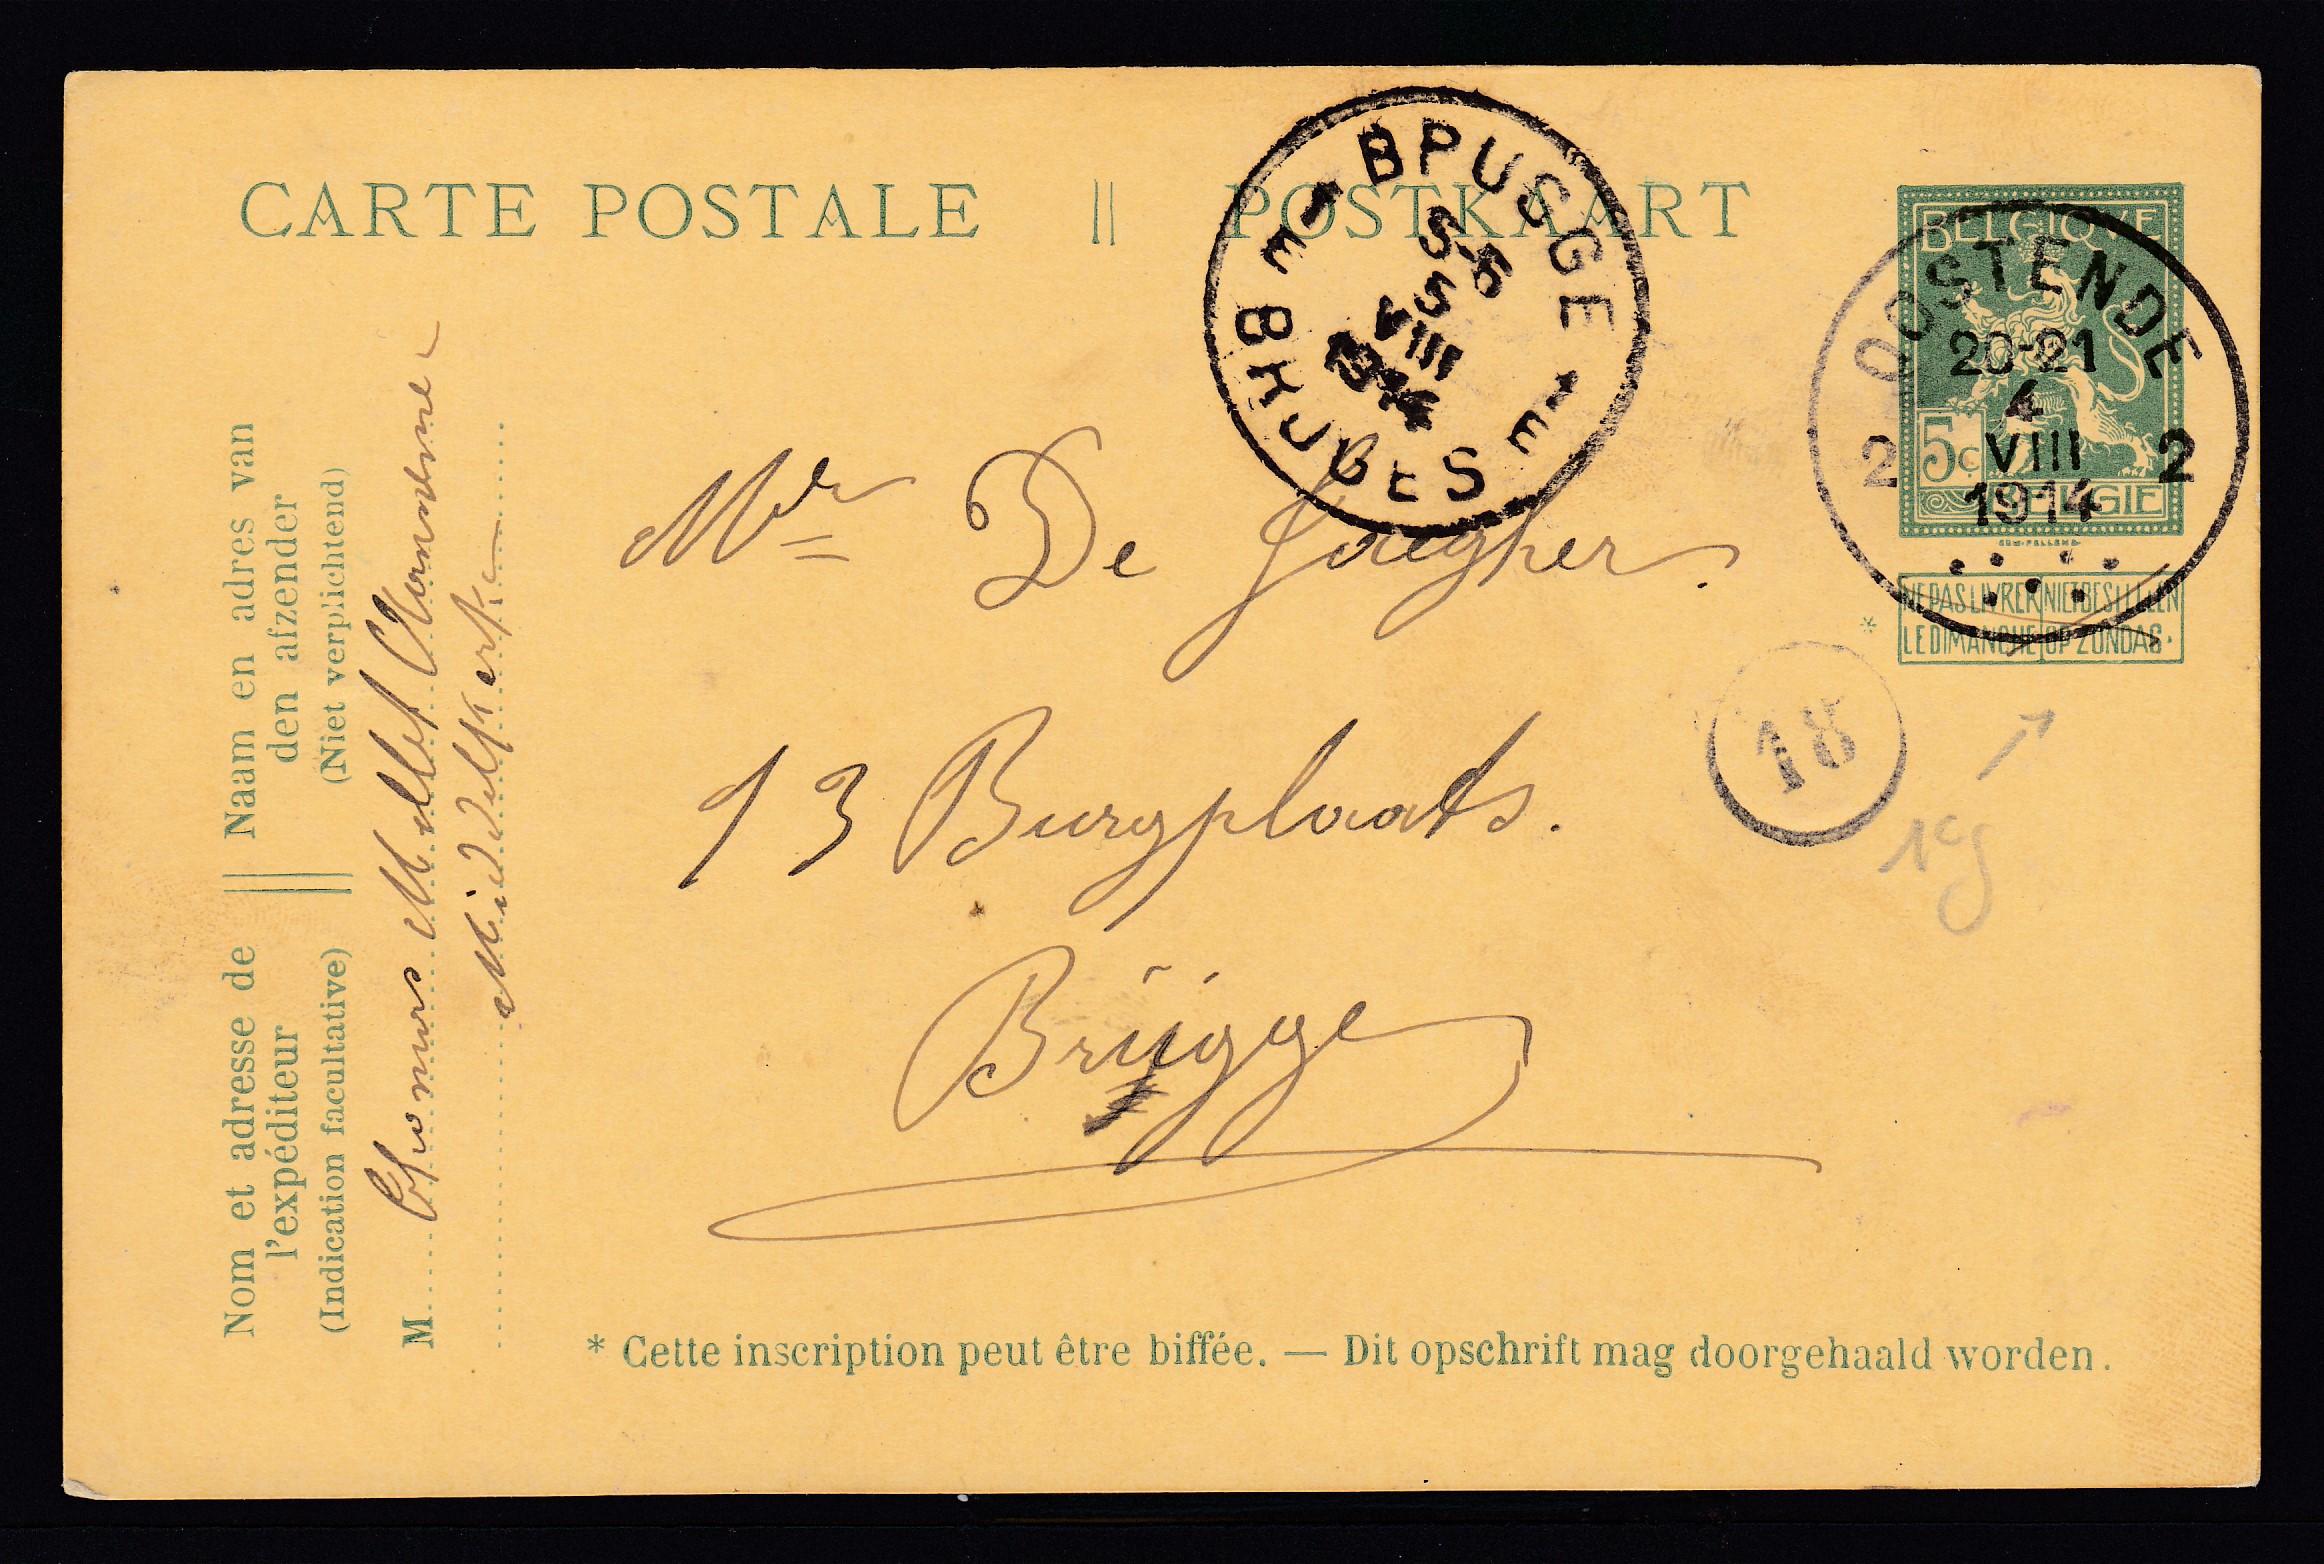 CARTE POSTALE || POSTKAART
BRUGGE
E 5-6 E
5
VIII
1914
BRUGES
BELGIQUE
5c
BELGIE
OOSTENDE
20-21
4
2 VIII 2
1914
NE PAS LIVRER NIET BESTELLEN
* LE DIMANCHE OP ZONDAG.
18
Mer De Jaegher.
13 Burgplaats.
Brügge
Nom et adresse de || Naam en adres van
l'expéditeur den afzender
(Indication facultative) || (Niet verplichtend)
M. Thomas
Middelkerke
* Cette inscription peut être biffée. — Dit opschrift mag doorgehaald worden.